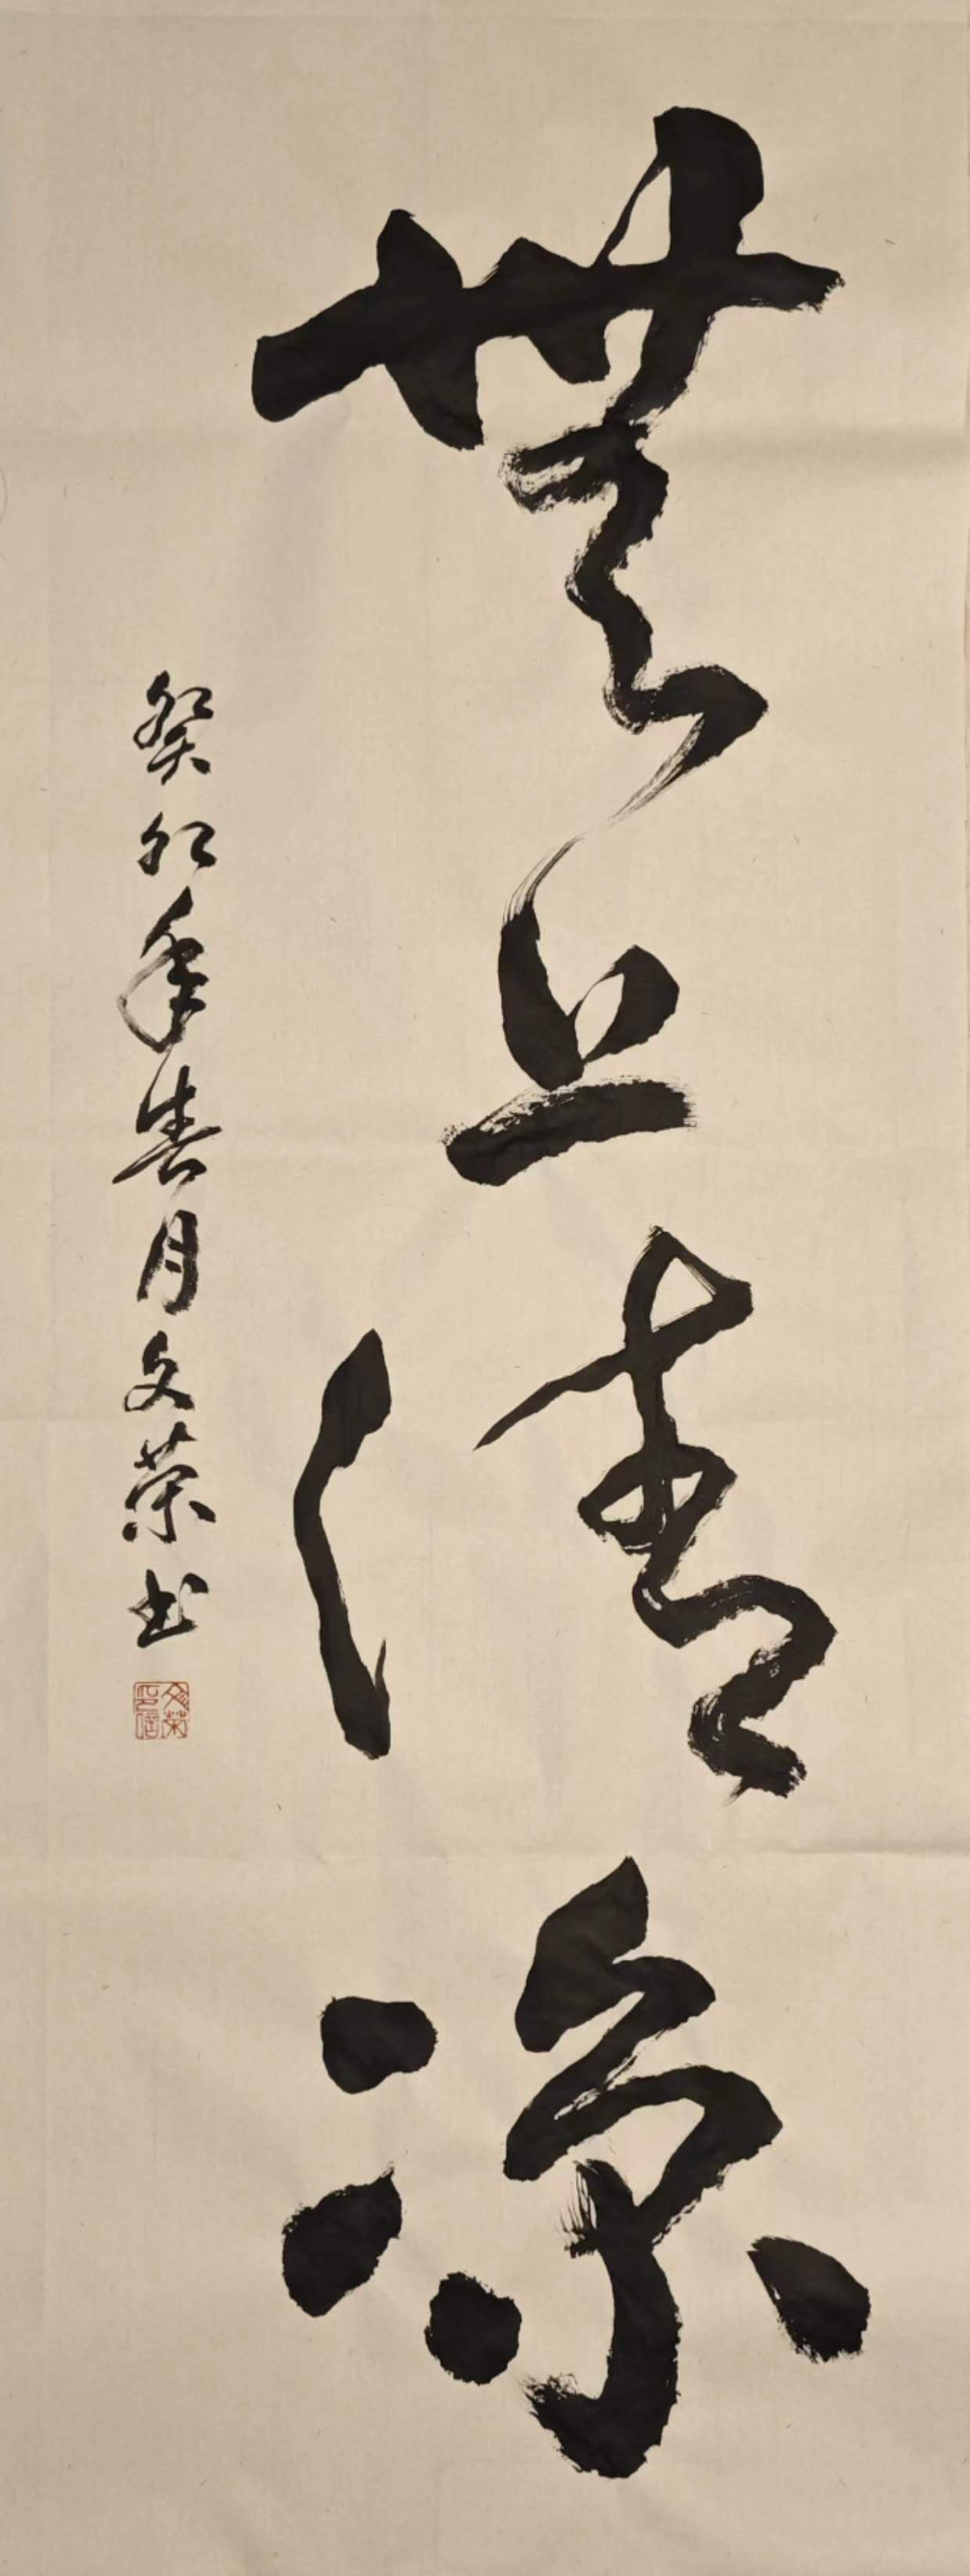 無上清涼
癸卯年春月文荣书
文荣印信